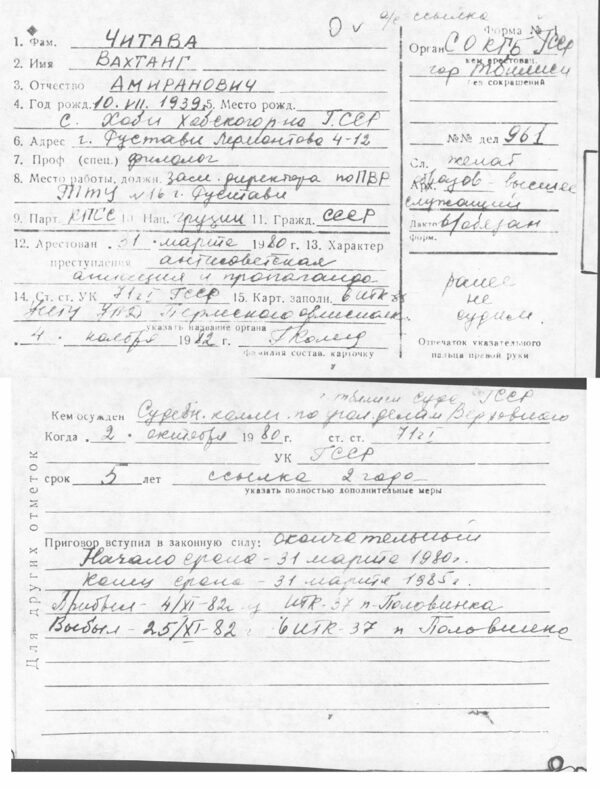 а/с ссылка
Форма № 1
1. Фам. ЧИТАВА
2. Имя ВАХТАНГ
3. Отчество АМИРАНОВИЧ
4. Год рожд. 10. VII. 1939. 5. Место рожд.
с. Хоби Хобского р-на ГССР
6. Адрес г. Рустави Лермонтова 4-12
7. Проф (спец.) филолог
8. Место работы, должн. зам. директора по ПВР
ТТУ №16 г. Рустави
9. Парт. КПСС 10. Нац. грузин 11. Гражд. СССР
12. Арестован 31 марта 1980 г. 13. Характер
преступления антисоветская
агитация и пропаганда
14. Ст. ст. УК 71 ч I ГССР 15. Карт. заполн. в ИТК-35
УВД Пермского облисполк.
указать название органа
4 ноября 1982 г.
фамилия состав. карточку
Орган СО КГБ ГССР
кем арестован.
гор Тбилиси
без сокращений
№№ дел 961
Сл. женат
Арх. образов - высшее
служащий
Дакто
форм.
ранее
не
судим.
Отпечаток указательного
пальца правой руки
Для других отметок
г. Тбилиси суда ГССР
Кем осужден Судебн. коллег. по угол. делам Верховного
Когда 2 октября 1980 г. ст. ст. 71 ч I
УК ГССР
срок 5 лет ссылка 2 года
указать полностью дополнительные меры
Приговор вступил в законную силу: окончательный
Начало срока - 31 марта 1980 г.
Конец срока - 31 марта 1985 г.
Прибыл - 4/XI-82г из ИТК-37 п. Половинка
Выбыл - 25/XI-82 г в ИТК-37 п Половинка